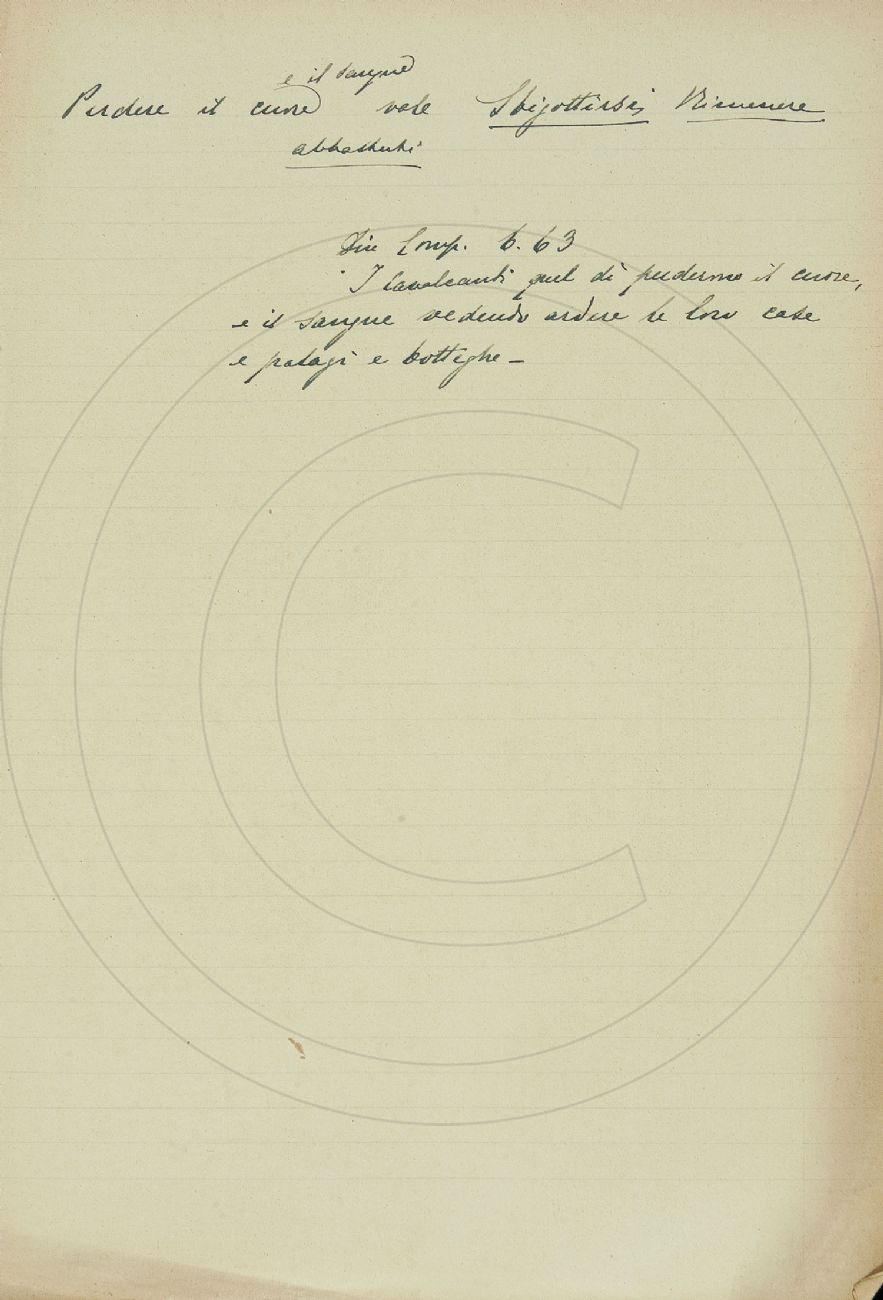 e il sangue
Perdere il cuore vale Sbigottirsi, Rimanere
abbattuti
Din Comp. 6. 63
I Cavalcanti quel dì perderono il cuore,
e il sangue vedendo ardere le loro case
e palagi e botteghe –